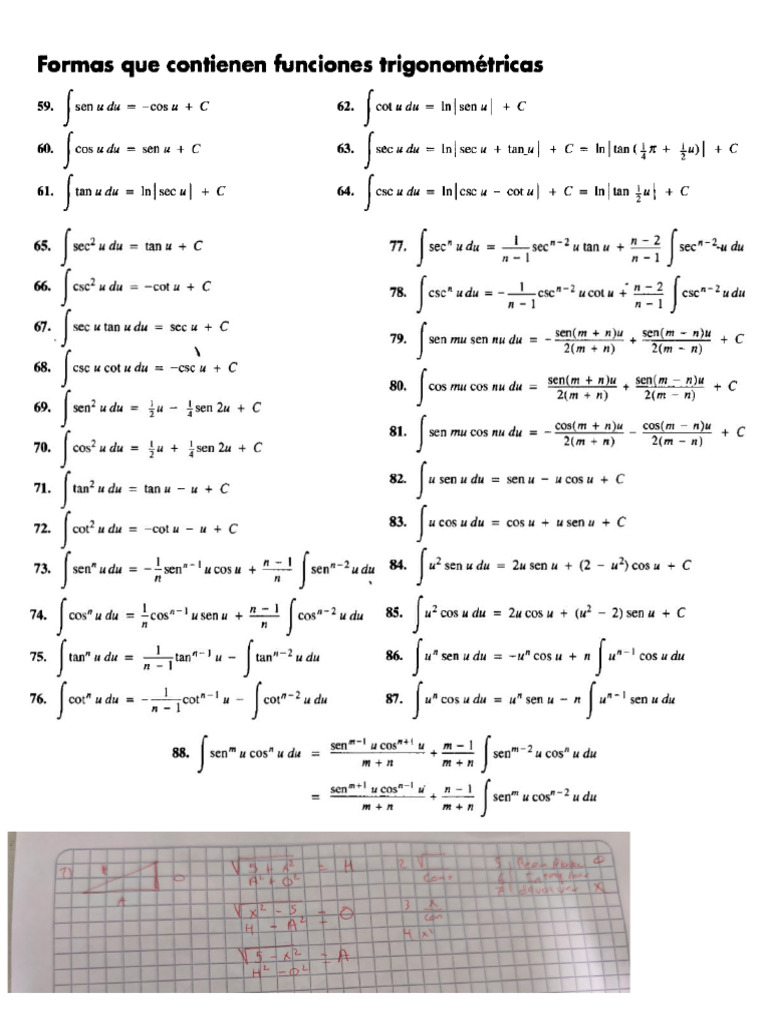 Formas que contienen funciones trigonométricas
59. ∫ sen u du = −cos u + C
60. ∫ cos u du = sen u + C
61. ∫ tan u du = ln|sec u| + C
62. ∫ cot u du = ln|sen u| + C
63. ∫ sec u du = ln|sec u + tan u| + C = ln|tan (1/4 π + 1/2 u)| + C
64. ∫ csc u du = ln|csc u − cot u| + C = ln|tan 1/2 u| + C
65. ∫ sec² u du = tan u + C
66. ∫ csc² u du = −cot u + C
67. ∫ sec u tan u du = sec u + C
68. ∫ csc u cot u du = −csc u + C
69. ∫ sen² u du = 1/2 u − 1/4 sen 2u + C
70. ∫ cos² u du = 1/2 u + 1/4 sen 2u + C
71. ∫ tan² u du = tan u − u + C
72. ∫ cot² u du = −cot u − u + C
73. ∫ senⁿ u du = −1/n senⁿ⁻¹ u cos u + (n − 1)/n ∫ senⁿ⁻² u du
74. ∫ cosⁿ u du = 1/n cosⁿ⁻¹ u sen u + (n − 1)/n ∫ cosⁿ⁻² u du
75. ∫ tanⁿ u du = 1/(n − 1) tanⁿ⁻¹ u − ∫ tanⁿ⁻² u du
76. ∫ cotⁿ u du = −1/(n − 1) cotⁿ⁻¹ u − ∫ cotⁿ⁻² u du
77. ∫ secⁿ u du = 1/(n − 1) secⁿ⁻² u tan u + (n − 2)/(n − 1) ∫ secⁿ⁻² u du
78. ∫ cscⁿ u du = −1/(n − 1) cscⁿ⁻² u cot u + (n − 2)/(n − 1) ∫ cscⁿ⁻² u du
79. ∫ sen mu sen nu du = −sen(m + n)u/2(m + n) + sen(m − n)u/2(m − n) + C
80. ∫ cos mu cos nu du = sen(m + n)u/2(m + n) + sen(m − n)u/2(m − n) + C
81. ∫ sen mu cos nu du = −cos(m + n)u/2(m + n) − cos(m − n)u/2(m − n) + C
82. ∫ u sen u du = sen u − u cos u + C
83. ∫ u cos u du = cos u + u sen u + C
84. ∫ u² sen u du = 2u sen u + (2 − u²) cos u + C
85. ∫ u² cos u du = 2u cos u + (u² − 2) sen u + C
86. ∫ uⁿ sen u du = −uⁿ cos u + n ∫ uⁿ⁻¹ cos u du
87. ∫ uⁿ cos u du = uⁿ sen u − n ∫ uⁿ⁻¹ sen u du
88. ∫ senᵐ u cosⁿ u du = − senᵐ⁻¹ u cosⁿ⁺¹ u/(m + n) + (m − 1)/(m + n) ∫ senᵐ⁻² u cosⁿ u du
= senᵐ⁺¹ u cosⁿ⁻¹ u/(m + n) + (n − 1)/(m + n) ∫ senᵐ u cosⁿ⁻² u du
H
O
A
√5 + x² = H
A² + O²
√x² − 5 = O
H − A²
√5 − x² = A
H² − O²
2 √
3 x
4 x